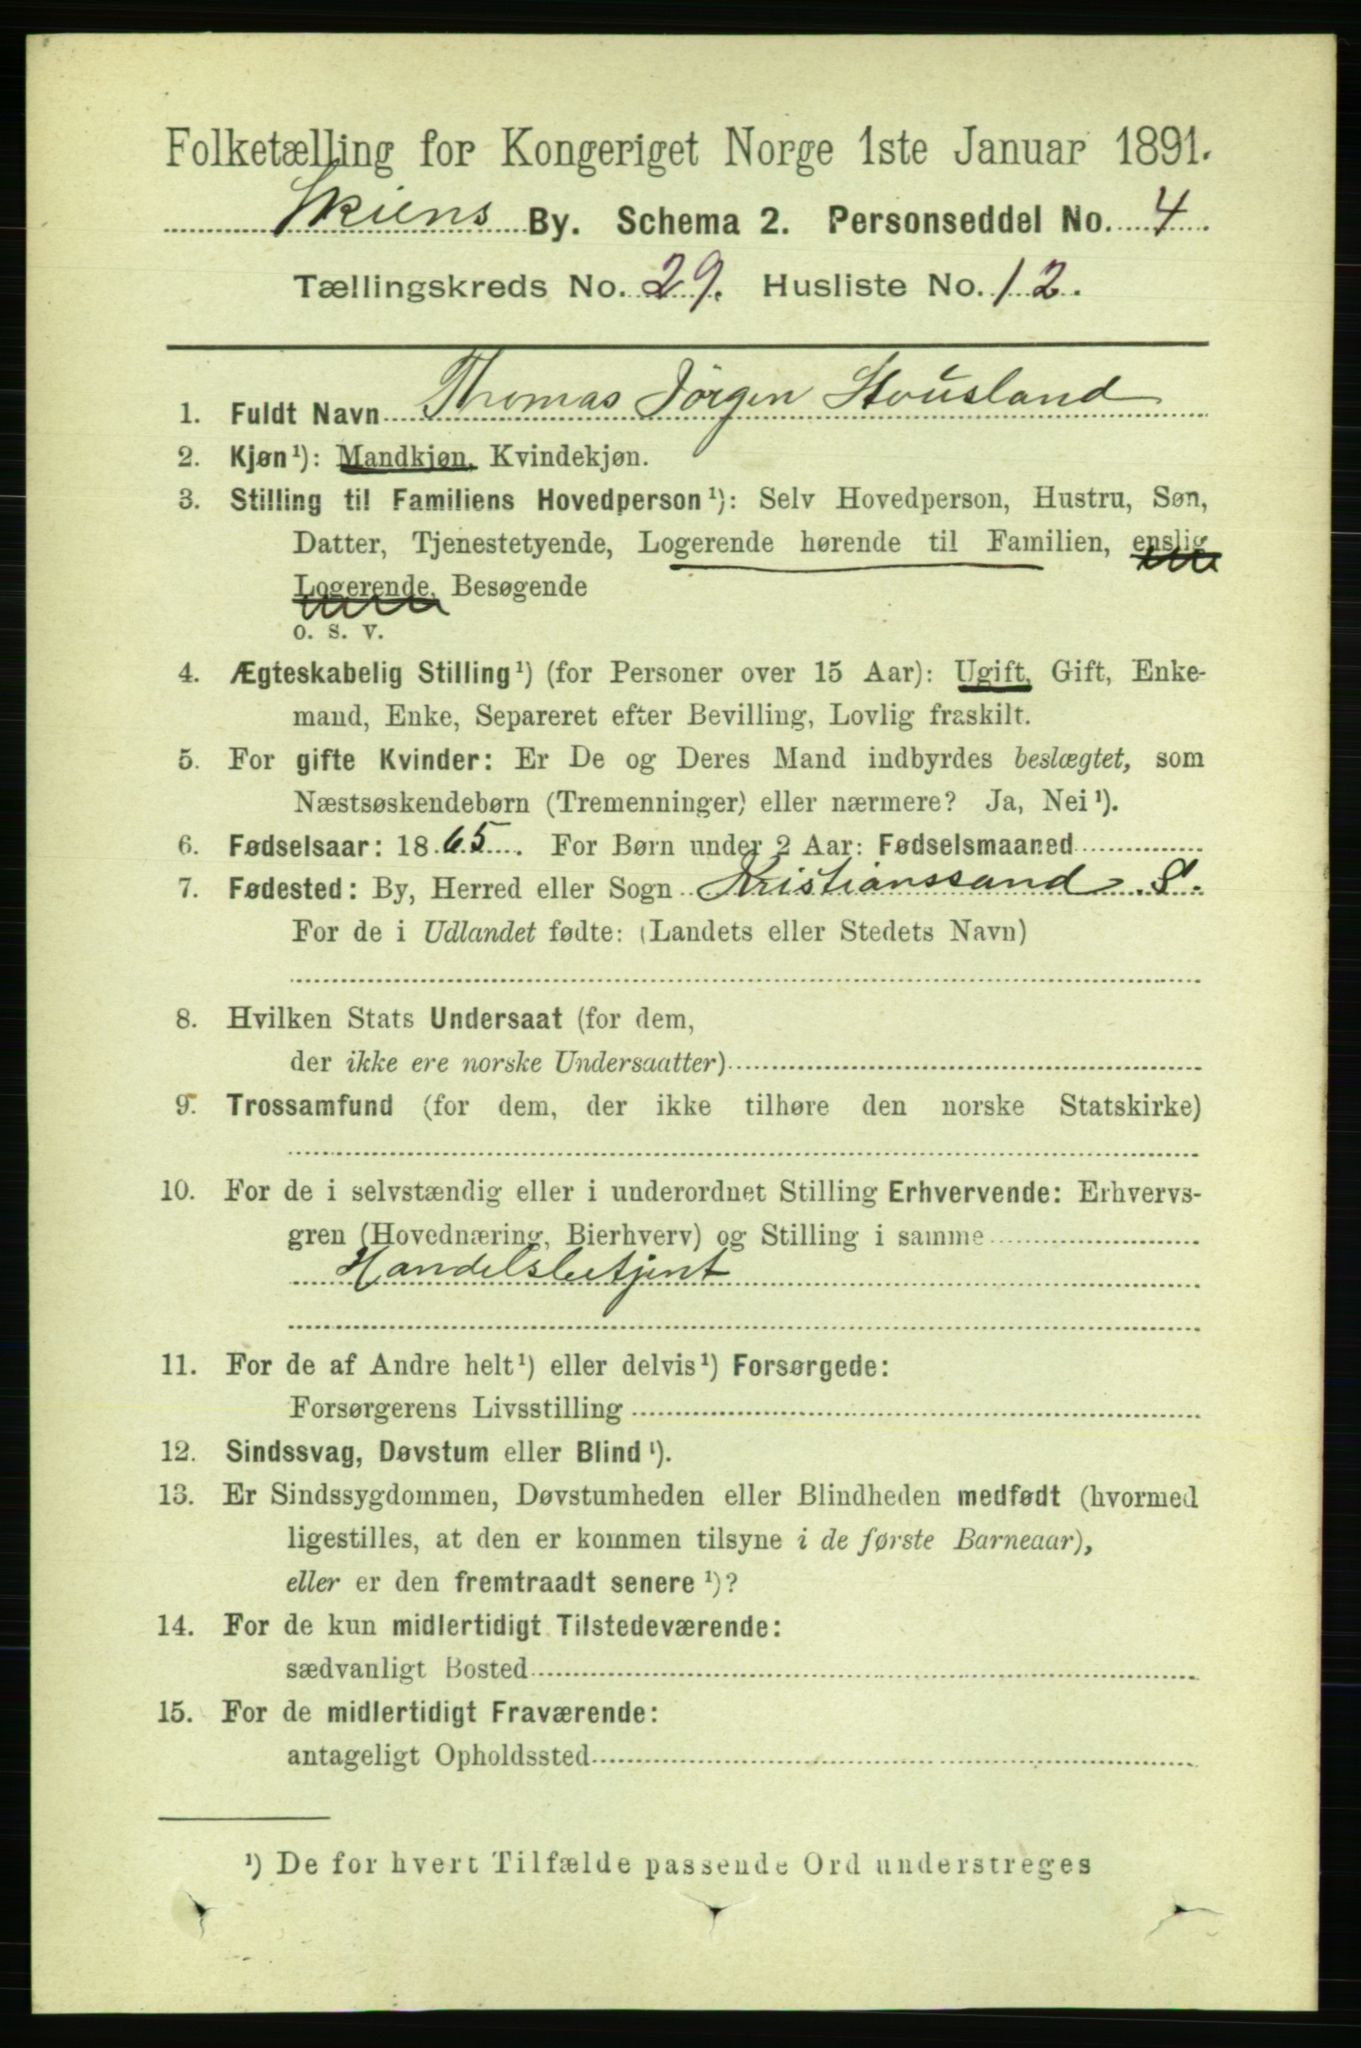 Folketælling for Kongeriget Norge 1ste Januar 1891.
Skiens By. Schema 2. Personseddel No. 4.
Tællingskreds No. 29. Husliste No. 12.
1. Fuldt Navn Thomas Jørgen Stousland
2. Kjøn¹): Mandkjøn, Kvindekjøn.
3. Stilling til Familiens Hovedperson¹): Selv Hovedperson, Hustru, Søn,
Datter, Tjenestetyende, Logerende hørende til Familien, enslig
Logerende, Besøgende
o. s. v.
4. Ægteskabelig Stilling¹) (for Personer over 15 Aar): Ugift, Gift, Enke-
mand, Enke, Separeret efter Bevilling, Lovlig fraskilt.
5. For gifte Kvinder: Er De og Deres Mand indbyrdes beslægtet, som
Næstsøskendebørn (Tremenninger) eller nærmere? Ja, Nei¹).
6. Fødselsaar: 1865. For Børn under 2 Aar: Fødselsmaaned
7. Fødested: By, Herred eller Sogn Kristianssand S.
For de i Udlandet fødte: (Landets eller Stedets Navn)
8. Hvilken Stats Undersaat (for dem,
der ikke ere norske Undersaatter)
9. Trossamfund (for dem, der ikke tilhøre den norske Statskirke)
10. For de i selvstændig eller i underordnet Stilling Erhvervende: Erhvervs-
gren (Hovednæring, Bierhverv) og Stilling i samme
Handelsbetjent
11. For de af Andre helt¹) eller delvis¹) Forsørgede:
Forsørgerens Livsstilling
12. Sindssvag, Døvstum eller Blind¹).
13. Er Sindssygdommen, Døvstumheden eller Blindheden medfødt (hvormed
ligestilles, at den er kommen tilsyne i de første Barneaar),
eller er den fremtraadt senere¹)?
14. For de kun midlertidigt Tilstedeværende:
sædvanligt Bosted
15. For de midlertidigt Fraværende:
antageligt Opholdssted
¹) De for hvert Tilfælde passende Ord understreges